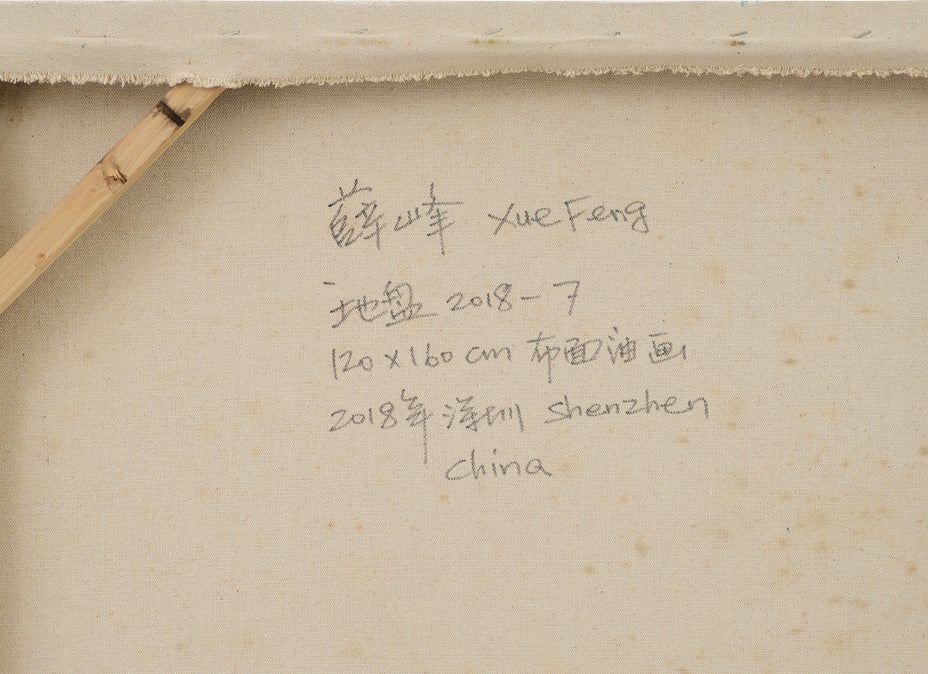 薛峰 Xue Feng
地盘 2018-7
120x160cm 布面油画
2018年 深圳 Shenzhen
China